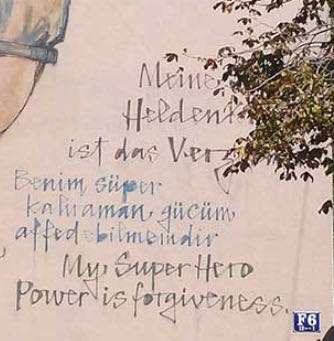 Meine
Helden
ist das
Benim, süper
kahraman, gücüm,
affedebilmemdir
My, Super Hero
Power is forgiveness.
F6